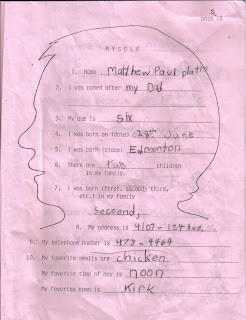 S
DOOR 18
MYSELF
1. Name Matthew Paul platts
2. I was named after my Dad
3. My age is six
4. I was born on (date) 28th June
5. I was born (place) Edmonton
6. There are two children
in my family.
7. I was born (first, second, third,
etc.) in my family
seceond,
8. My address is 4107-134 ave.
9. My telephone number is 478-4464
10. My favorite smells are chicken
My favorite time of day is noon
My favorite name is Kirk